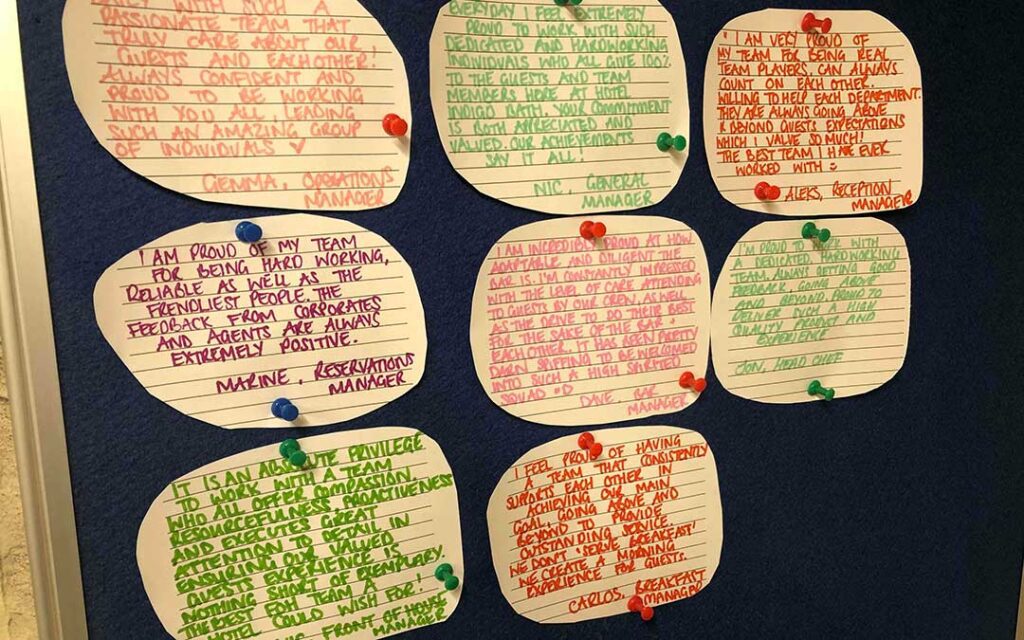 ONLY WITH SUCH A
PASSIONATE TEAM THAT
TRULY CARE ABOUT OUR
GUESTS AND EACHOTHER!
ALWAYS CONFIDENT AND
PROUD TO BE WORKING
WITH YOU ALL, LEADING
SUCH AN AMAZING GROUP
OF INDIVIDUALS ♡
GEMMA, OPERATIONS
MANAGER
EVERYDAY I FEEL EXTREMELY
PROUD TO WORK WITH SUCH
DEDICATED AND HARDWORKING
INDIVIDUALS WHO ALL GIVE 100%
TO THE GUESTS AND TEAM
MEMBERS HERE AT HOTEL
INDIGO BATH. YOUR COMMITMENT
IS BOTH APPRECIATED AND
VALUED. OUR ACHIEVEMENTS
SAY IT ALL!
NIC, GENERAL
MANAGER
"I AM VERY PROUD OF
MY TEAM FOR BEING REAL
TEAM PLAYERS. CAN ALWAYS
COUNT ON EACH OTHER.
WILLING TO HELP EACH DEPARTMENT.
THEY ARE ALWAYS GOING ABOVE
& BEYOND GUESTS EXPECTATIONS
WHICH I VALUE SO MUCH!
THE BEST TEAM I HAVE EVER
WORKED WITH :)
ALEKS, RECEPTION
MANAGER
I AM PROUD OF MY TEAM
FOR BEING HARD WORKING,
RELIABLE AS WELL AS THE
FRENDLIEST PEOPLE. THE
FEEDBACK FROM CORPORATES
AND AGENTS ARE ALWAYS
EXTREMELY POSITIVE.
MARINE, RESERVATIONS
MANAGER
I AM INCREDIBLY PROUD AT HOW
ADAPTABLE AND DILIGENT THE
BAR IS. I'M CONSTANTLY IMPRESSED
WITH THE LEVEL OF CARE ATTENDING
TO GUESTS BY OUR CREW, AS WELL
AS THE DRIVE TO DO THEIR BEST
FOR THE SAKE OF THE BAR +
EACH OTHER. IT HAS BEEN PRETTY
DARN SPIFFING TO BE WELCOMED
INTO SUCH A HIGH SPIRITED
SQUAD :D
DAVE, BAR
MANAGER
I'M PROUD TO WORK WITH
A DEDICATED, HARD WORKING
TEAM. ALWAYS GETTING GOOD
FEEDBACK, GOING ABOVE
AND BEYOND. PROUD TO
DELIVER SUCH A HIGH
QUALITY PRODUCT AND
EXPERIENCE
JON, HEAD CHEF
IT IS AN ABSOLUTE PRIVILEGE
TO WORK WITH A TEAM
WHO ALL OFFER COMPASSION
RESOURCEFULNESS, PROACTIVENESS
AND EXECUTES GREAT
ATTENTION TO DETAIL IN
ENSURING OUR VALUED
GUESTS EXPERIENCE IS
NOTHING SHORT OF EXEMPLARY.
THE BEST FOH TEAM A
HOTEL COULD WISH FOR!
FRONT OF HOUSE
MANAGER
I FEEL PROUD OF HAVING
A TEAM THAT CONSISTENTLY
SUPPORTS EACH OTHER IN
ACHIEVING OUR MAIN
GOAL, GOING ABOVE AND
BEYOND TO PROVIDE
OUTSTANDING SERVICE.
WE DON'T 'SERVE BREAKFAST'
WE CREATE A MORNING
EXPERIENCE FOR GUESTS.
CARLOS, BREAKFAST
MANAGER